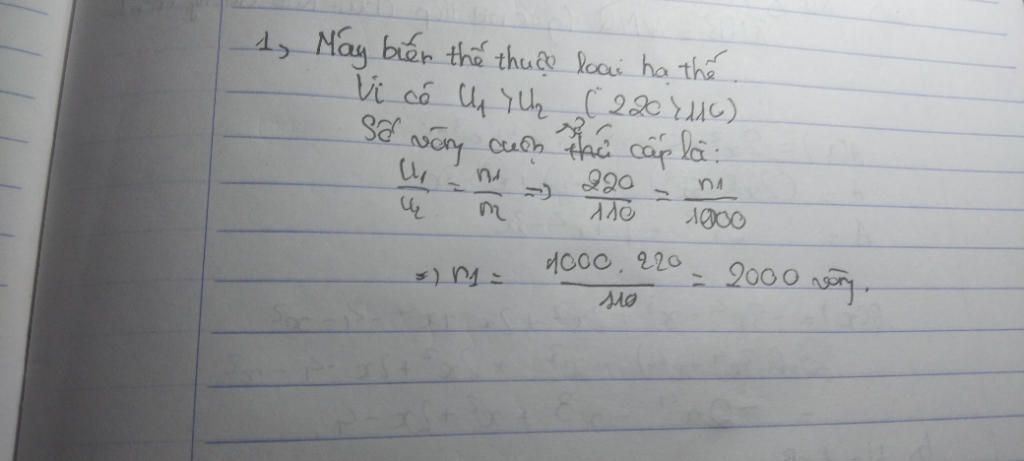 1, Máy biến thế thuộc loại hạ thế.
Vì có U1 > U2 (220 > 110)
Số vòng cuộn thứ cấp là:
U1/U2 = n1/n2 => 220/110 = n1/1000
=> n1 = 1000.220/110 = 2000 vòng.